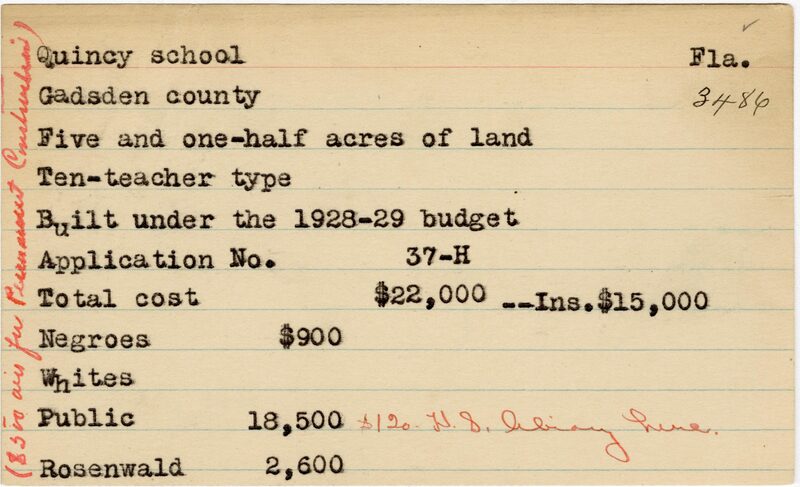 Quincy school Fla.
Gadsden county 3486
Five and one-half acres of land
Ten-teacher type
Built under the 1928-29 budget
Application No. 37-H
Total cost $22,000 --Ins.$15,000
Negroes $900
Whites
Public 18,500 $120. H. S. library
Rosenwald 2,600
for Permanent Construction)